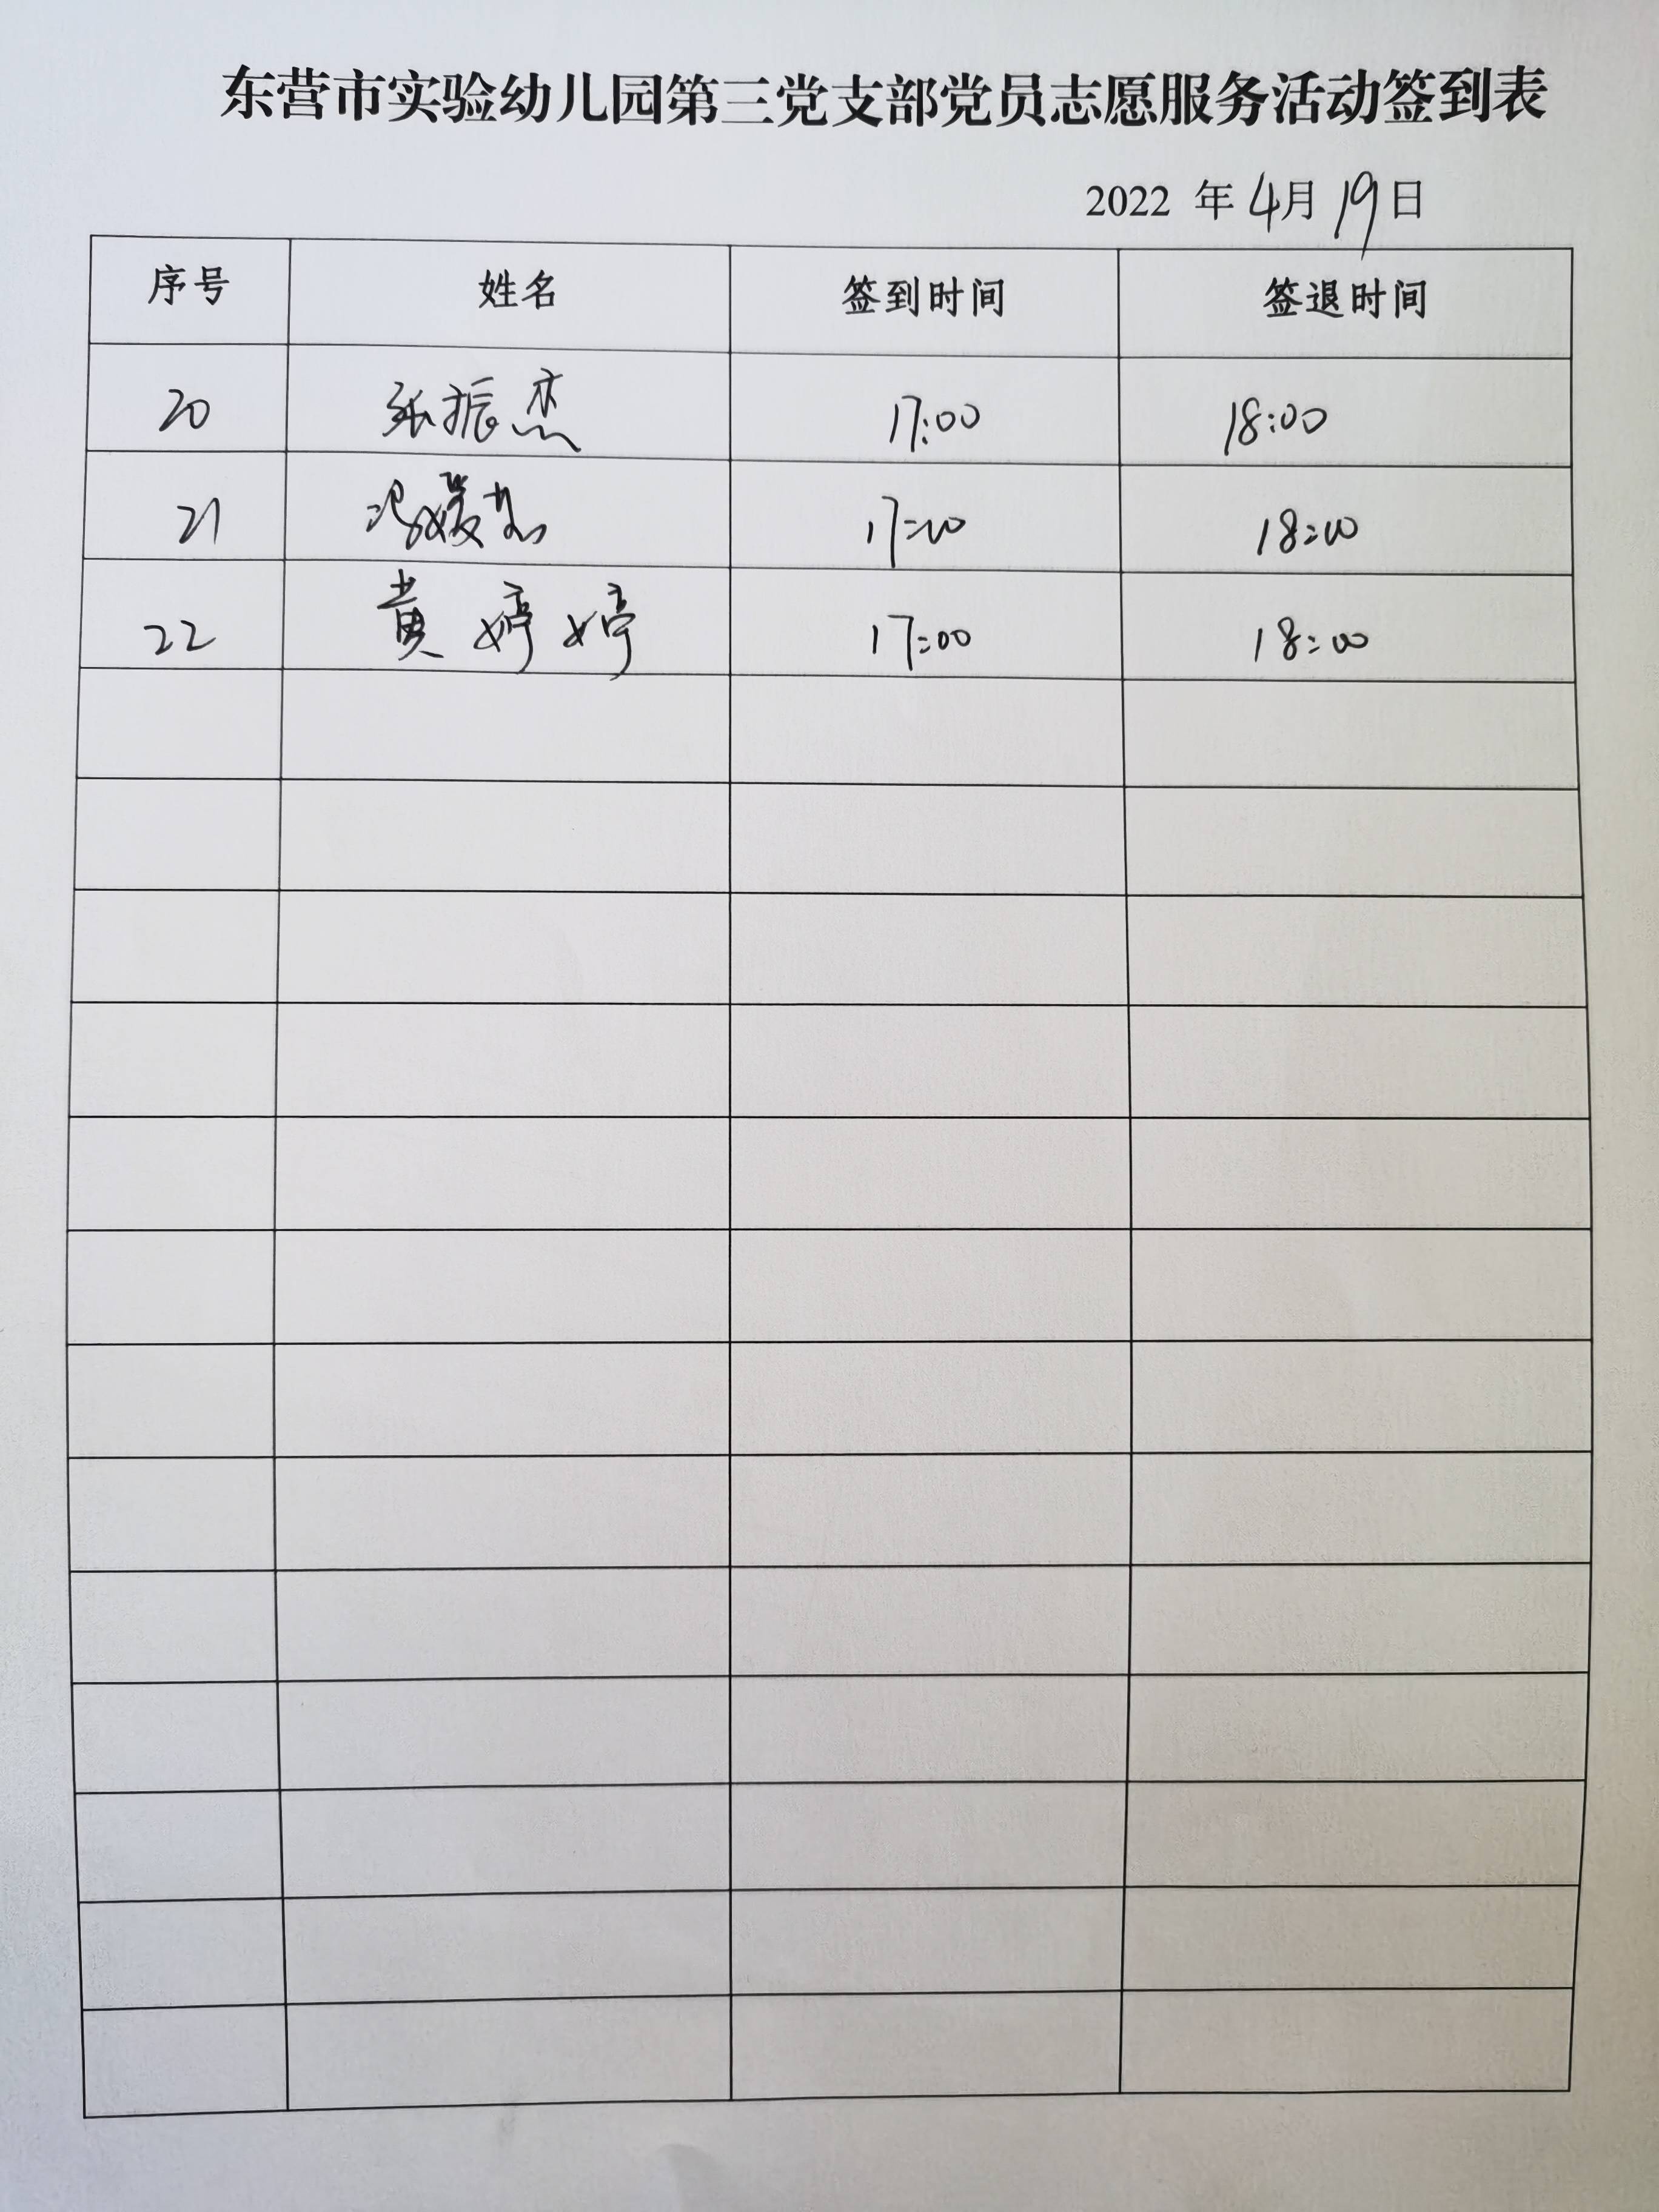 东营市实验幼儿园第三党支部党员志愿服务活动签到表
2022 年 4月 19日
序号 姓名 签到时间 签退时间
20 张振杰 17:00 18:00
21 冯媛 17:00 18:00
22 黄婷婷 17:00 18:00